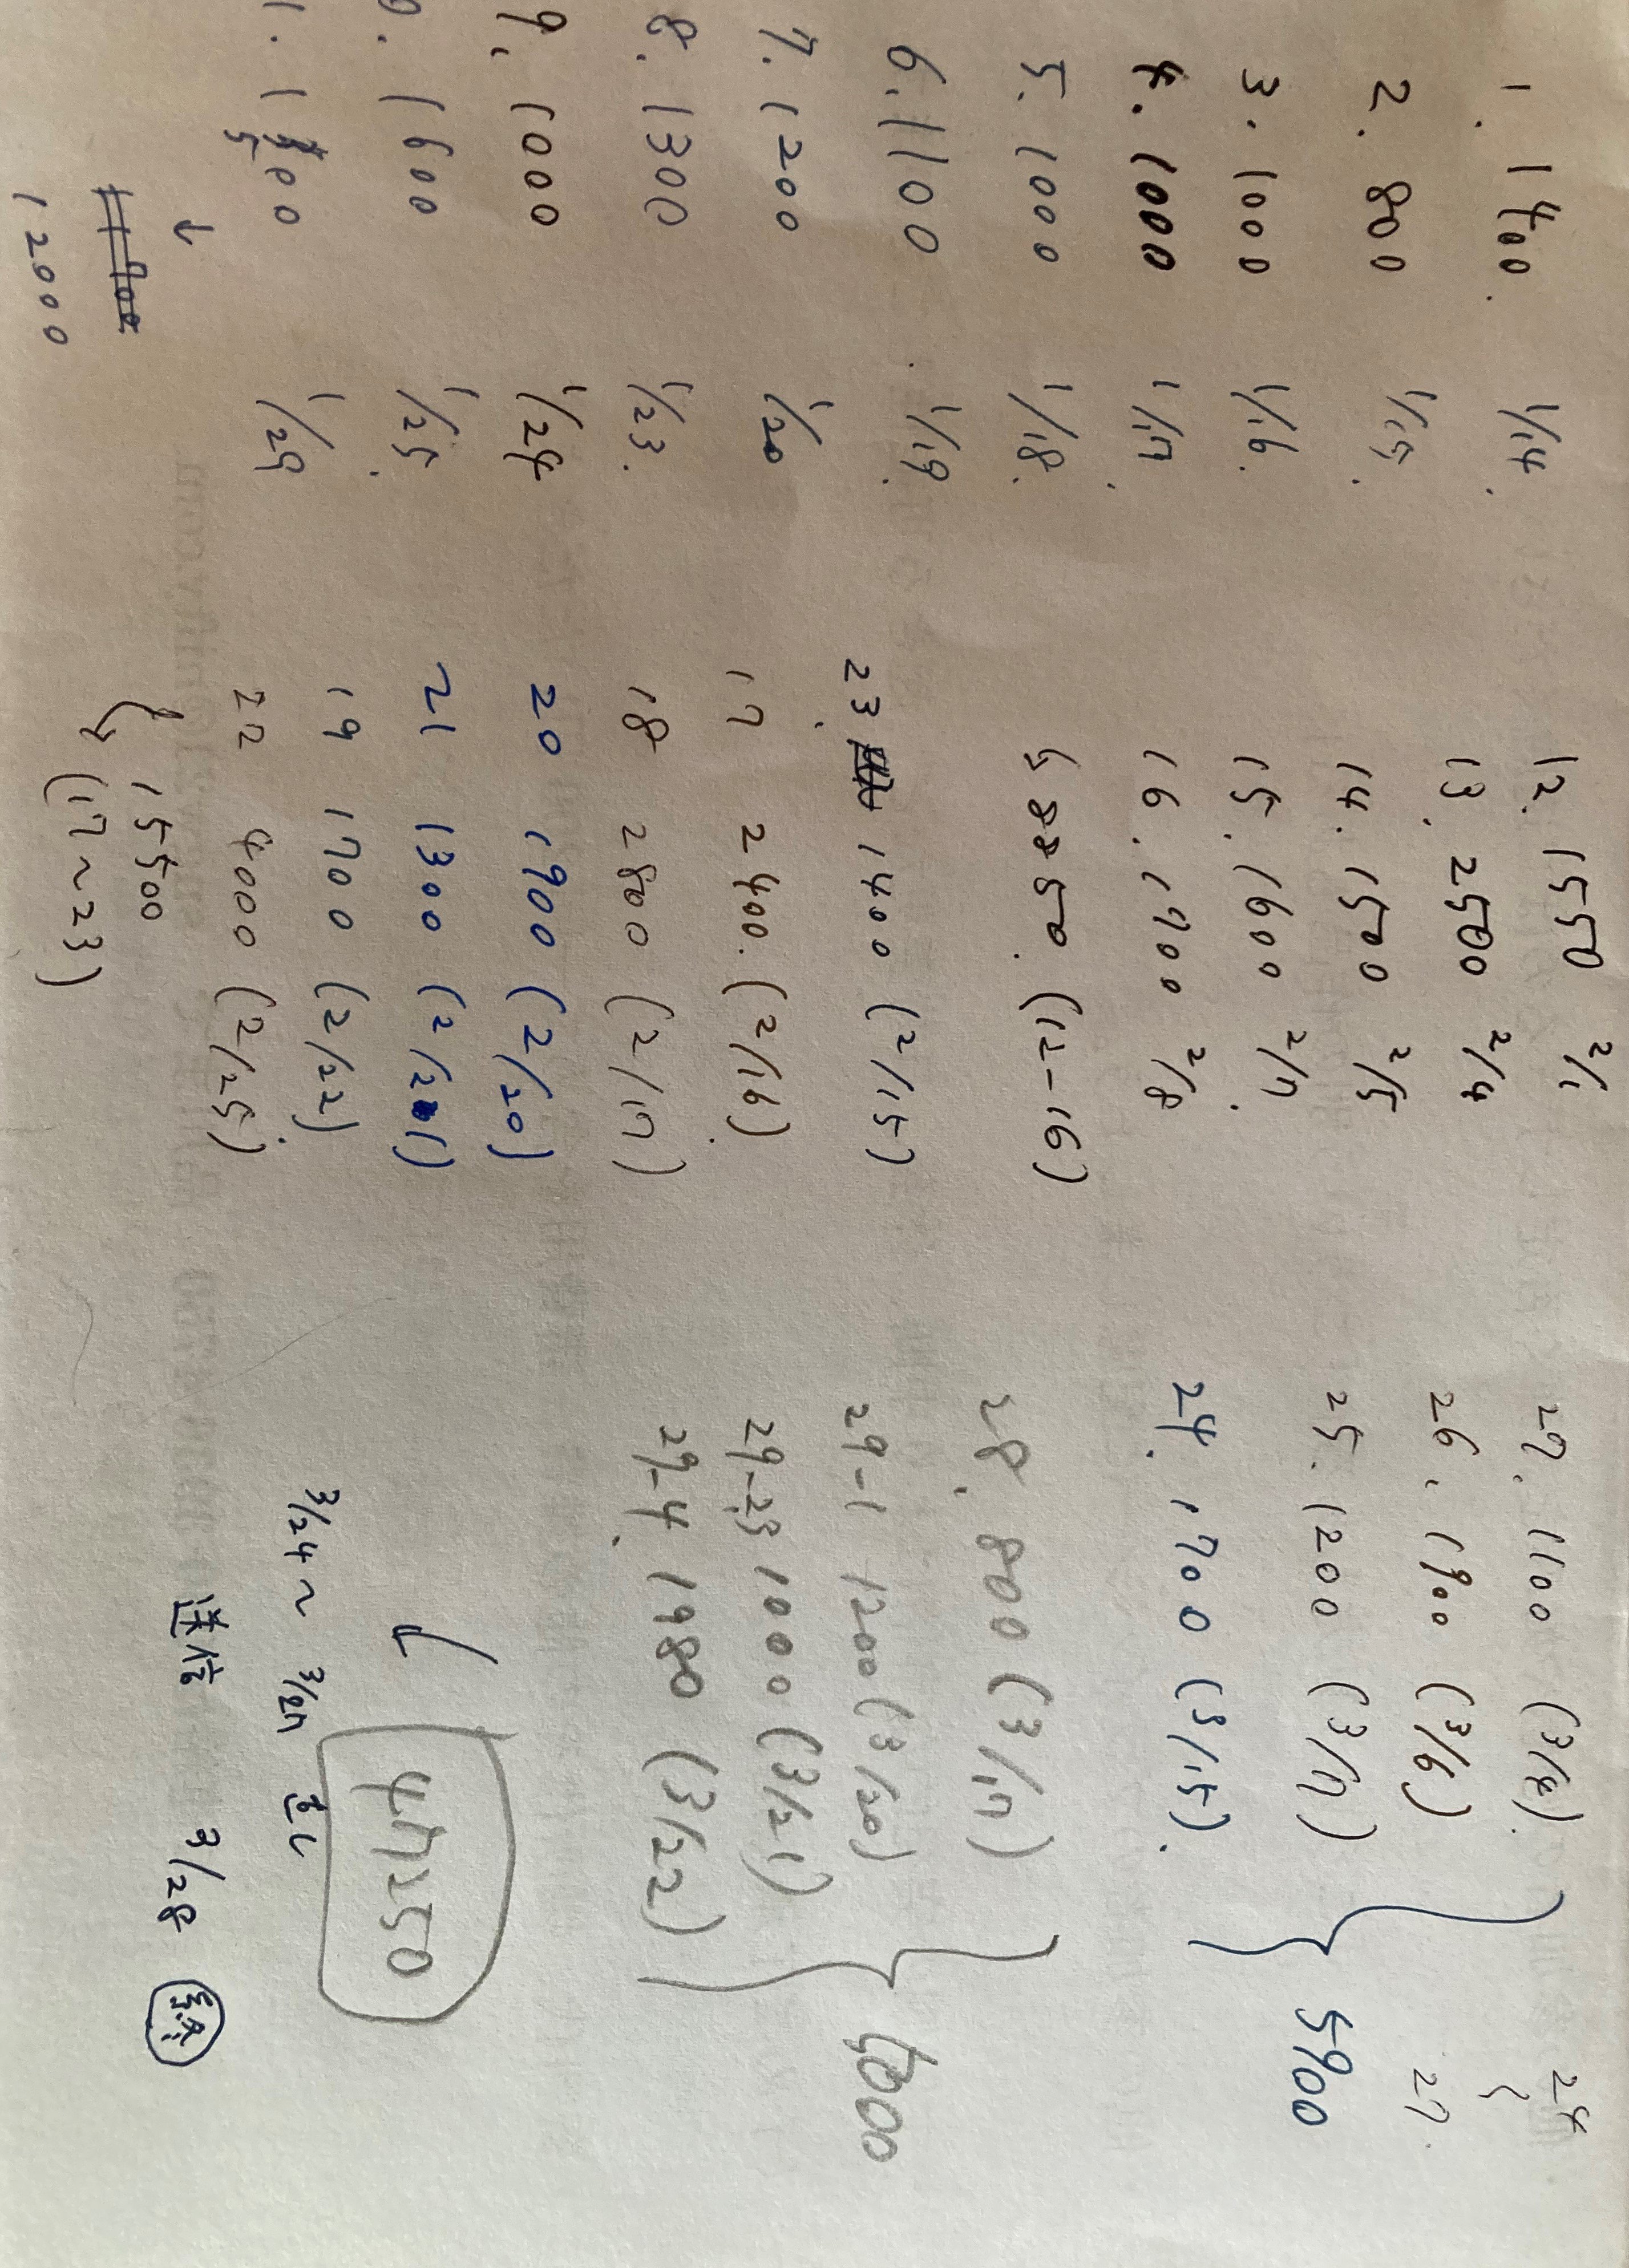 1. 1400. 1/14.
2. 800 1/15.
3. 1000 1/16.
4. 1000 1/17.
5. 1000 1/18.
6. 1100 1/19.
7. 1200 1/20
8. 1300 1/23.
9. 1000 1/24
0. 1600 1/25.
1. 1500 1/29
↓
12000
12. 1550 2/1
13. 2500 2/4
14. 1500 2/5
15. 1600 2/7.
16. 1900 2/8
(12-16)
23. 1400 (2/15)
17 2400. (2/16).
18 2800 (2/17)
20 1900 (2/20)
21 1300 (2/21)
19 1700 (2/22)
22 4000 (2/25)
15500
(17~23)
27. 1100 (3/4).
26. 1900 (3/6)
25. 1200 (3/7)
24. 1700 (3/15).
24
~
27.
5900
28. 800 (3/17)
29-1 1200 (3/20)
29-23 1000 (3/21)
29-4. 1980 (3/22)
47250
3/24 ~ 3/27
送信 3/28 終